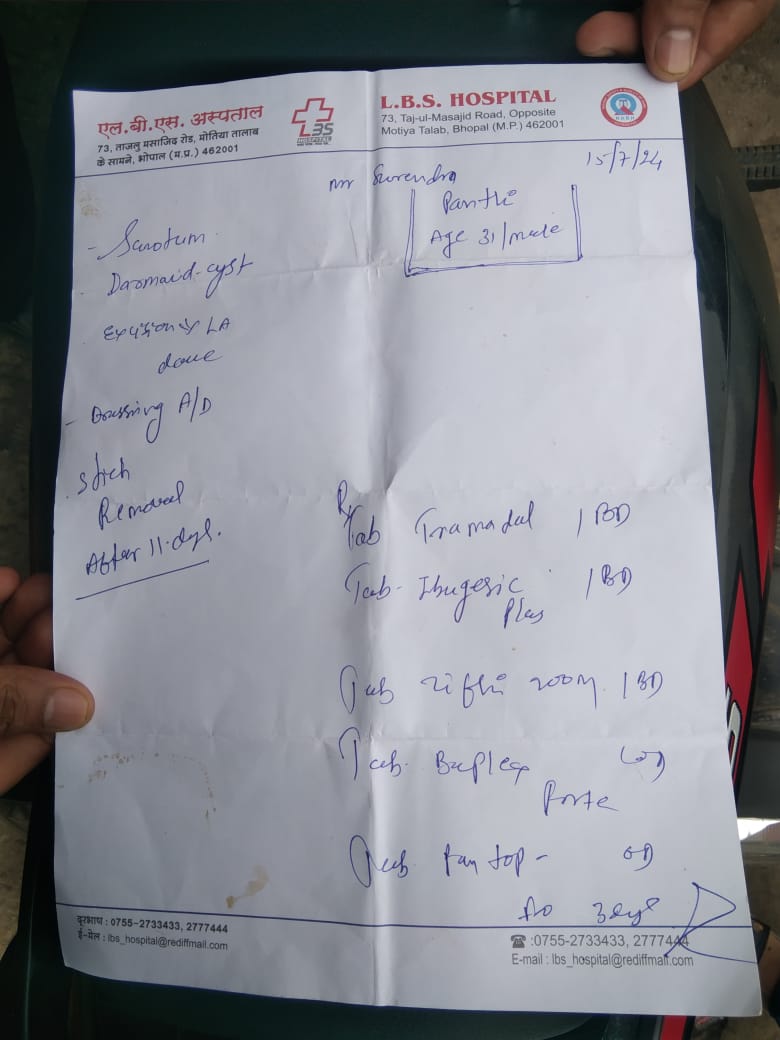 एल.बी.एस. अस्पताल
73, ताजलु मसाजिद रोड, मोतिया तालाब
के सामने, भोपाल (म.प्र.) 462001
LBS
HOSPITAL
L.B.S. HOSPITAL
73, Taj-ul-Masajid Road, Opposite
Motiya Talab, Bhopal (M.P.) 462001
15/7/24
mr Surendra
Panthi
Age 31/male
- Scrotum
Darmaid-cyst
LA
done
- Dressing A/D
Stich
Removal
After 11-dys.
Rx
Tab Tramadul 1 BD
Tab- Ibugesic 1 BD
Plus
Tab zifhi 200m. 1 BD
Tab. Baplex OD
Forte
Tab Pantop - OD
3dys
दूरभाष : 0755-2733433, 2777444
ई-मेल : lbs_hospital@rediffmail.com
☎ :0755-2733433, 2777444
E-mail : lbs_hospital@rediffmail.com